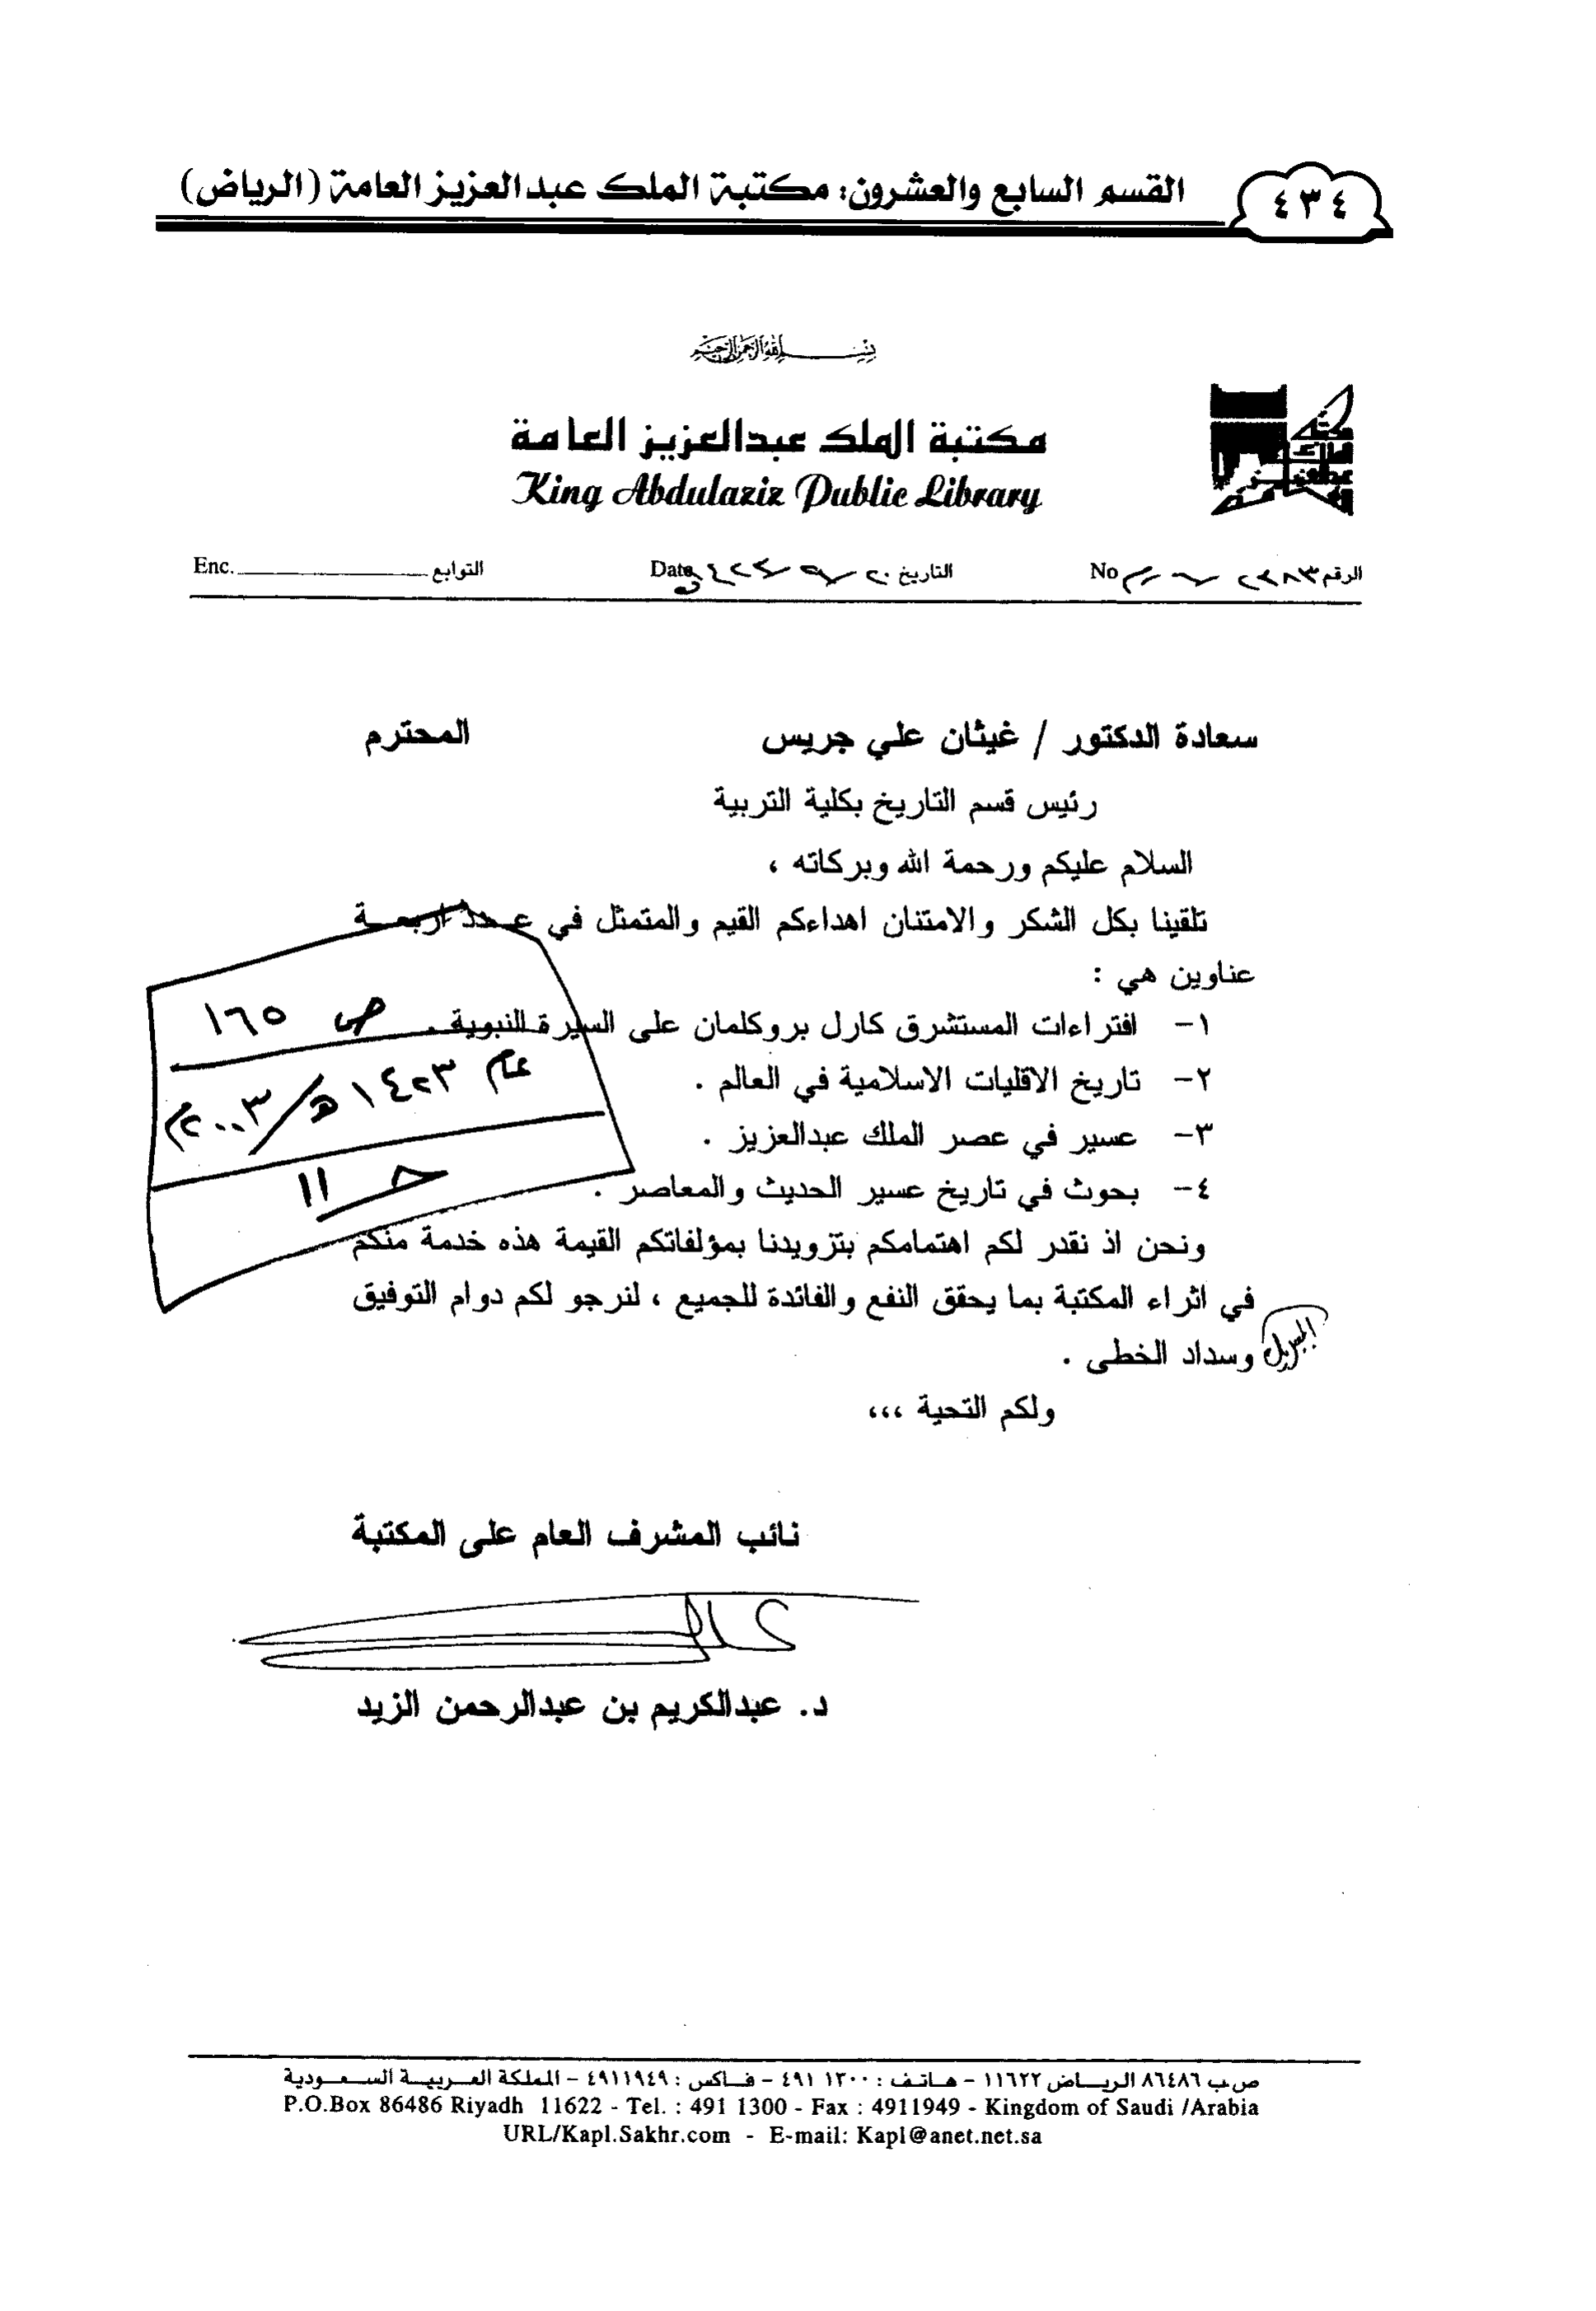 ٤٣٤
القسم السابع والعشرون: مكتبة الملك عبدالعزيز العامة (الرياض)
بسم الله الرحمن الرحيم
مكتبة الملك عبدالعزيز العامة
King Abdulaziz Public Library
الرقم No التاريخ Date التوابع Enc.
سعادة الدكتور / غيثان علي جريس المحترم
رئيس قسم التاريخ بكلية التربية
السلام عليكم ورحمة الله وبركاته ،
تلقينا بكل الشكر والامتنان اهداءكم القيم والمتمثل في عدد اربعة
عناوين هي :
١- افتراءات المستشرق كارل بروكلمان على السيرة النبوية .
٢- تاريخ الاقليات الاسلامية في العالم .
٣- عسير في عصر الملك عبدالعزيز .
٤- بحوث في تاريخ عسير الحديث والمعاصر .
ص ١٦٥
عام ١٤٢٣هـ/٢٠٠٣م
حـ ١١
ونحن اذ نقدر لكم اهتمامكم بتزويدنا بمؤلفاتكم القيمة هذه خدمة منكم
في اثراء المكتبة بما يحقق النفع والفائدة للجميع ، لنرجو لكم دوام التوفيق
وسداد الخطى .
ولكم التحية ،،،
نائب المشرف العام على المكتبة
د. عبدالكريم بن عبدالرحمن الزيد
ص.ب ٨٦٤٨٦ الرياض ١١٦٢٢ - هاتف : ٤٩١ ١٣٠٠ - فاكس : ٤٩١١٩٤٩ - المملكة العربية السعودية
P.O.Box 86486 Riyadh 11622 - Tel. : 491 1300 - Fax : 4911949 - Kingdom of Saudi /Arabia
URL/Kapl.Sakhr.com - E-mail: Kapl@anet.net.sa